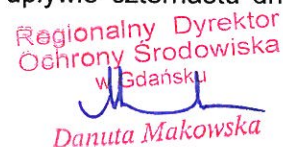 upływie czternastu dn
Regionalny Dyrektor
Ochrony Środowiska
w Gdańsku
Danuta Makowska